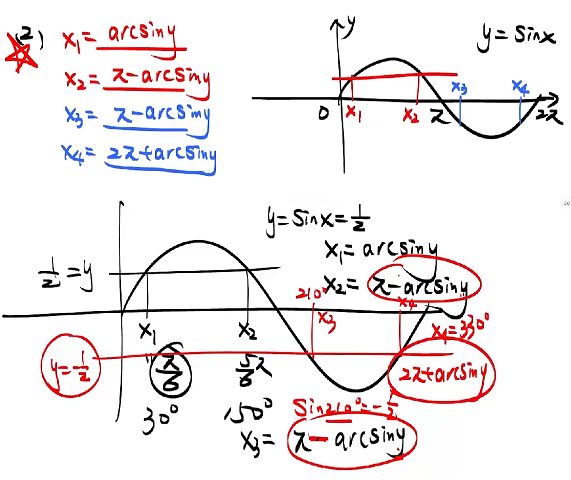 (2) x₁ = arcsiny
x₂ = π-arcsiny
x₃ = π-arcsiny
x₄ = 2π+arcsiny
y
y=sinx
0 x₁ x₂ π x₃ x₄ 2π
y=sinx=1/2
x₁=arcsiny
x₂=π-arcsiny
1/2=y
210°
x₁ x₂ x₃ x₄
x₄=330°
y=-1/2
π/6 5/6π
2π+arcsiny
30° 150°
sin210°=-1/2
x₃= π-arcsiny